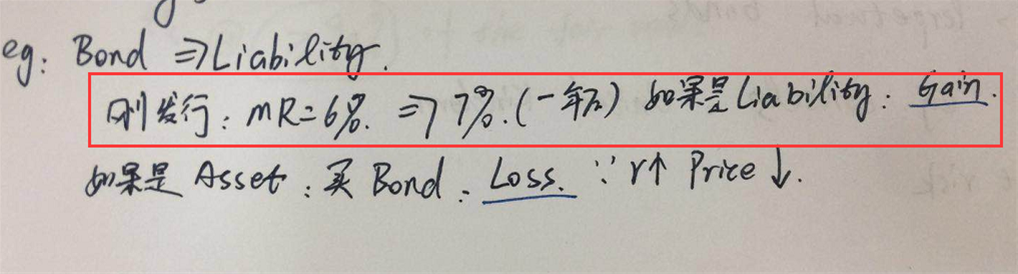 eg: Bond ⇒ Liability.
刚发行: mR=6%. ⇒ 7%.(一年后) 如果是Liability: Gain.
如果是 Asset: 买 Bond. Loss. ∵ r↑ Price ↓.